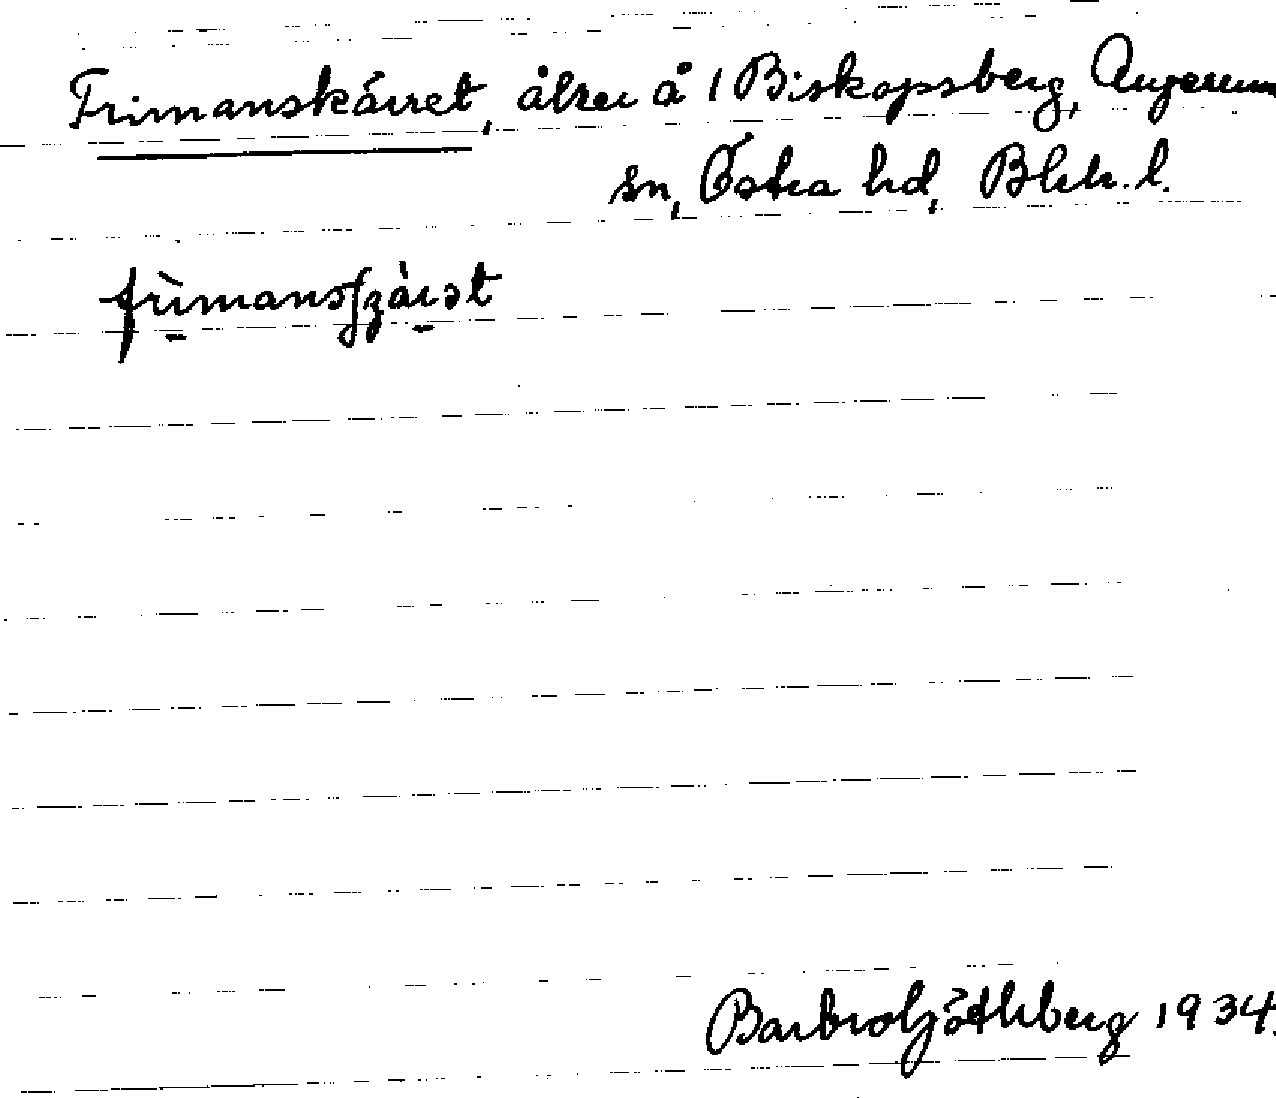 Frimanskärret, åker å 1 Biskopsberg, Augerum
sn, Östra hd, Blek. l.
Barbro Göthberg 1934.